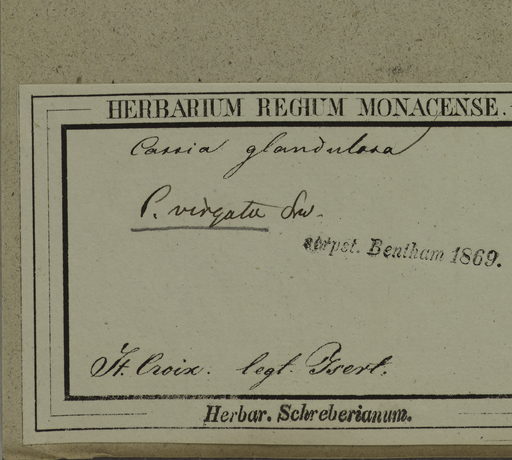 HERBARIUM REGIUM MONACENSE.
Cassia glandulosa
C. virgata Sw.
stirpst. Bentham 1869.
St. Croix. legt. Isert.
Herbar. Schreberianum.